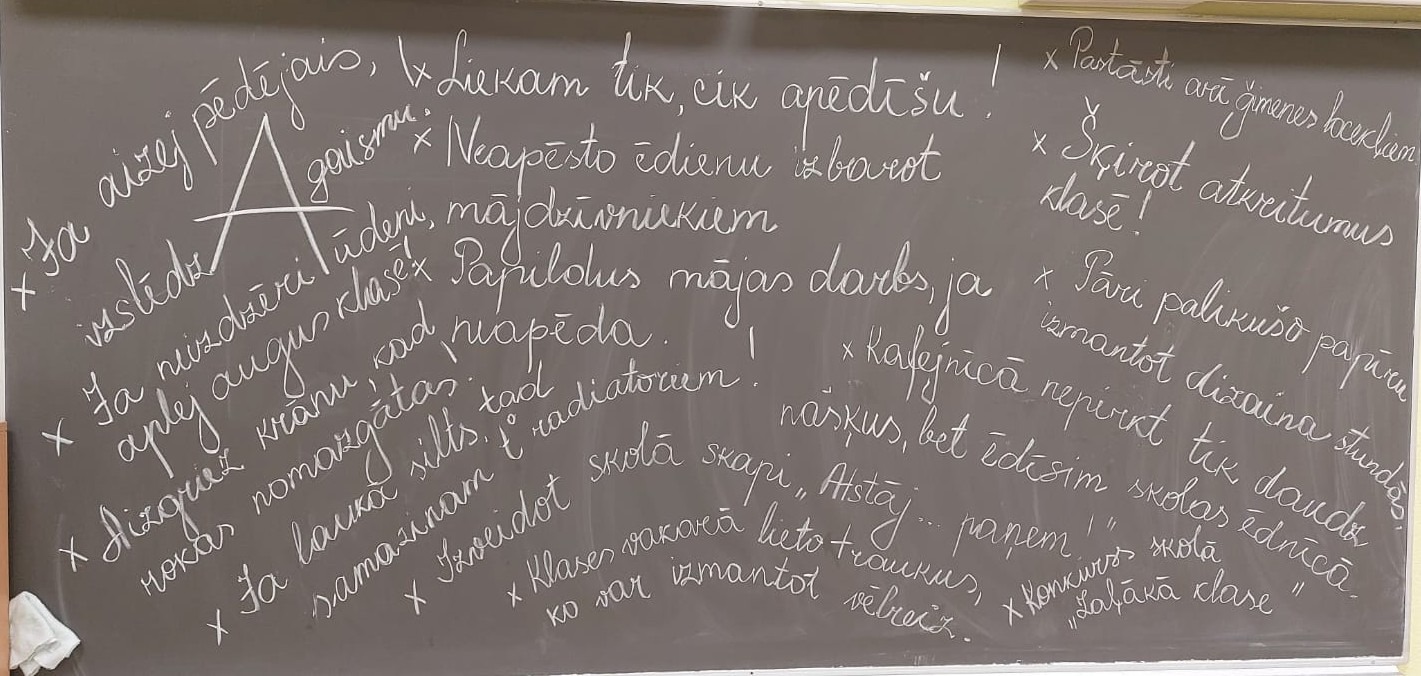 x Ja aizej pēdējais,
izslēdz gaismu.
A
x Ja neizdzēri ūdeni,
aplej augus klasē!
x Aizgriez krānu, kad
rokas nomazgātas!
x Ja laukā silts, tad
samazinam t° radiatoriem!
x Liekam tik, cik apēdīšu!
x Neapēsto ēdienu izbarot
mājdzīvniekiem
x Papildus mājas darbs, ja
neapēda.
x Izveidot skolā skapi „Atstāj... paņem!"
x Klases vakarā lieto traukus,
ko var izmantot vēlreiz.
x Pastāsti arī ģimenes locekļiem
x Šķirot atkritumus
klasē!
x Pāri palikušo papīru
izmantot dizaina stundās.
x Kafejnīcā nepirkt tik daudz
našķus, bet ēdīsim skolas ēdnīcā.
x Konkurss skolā
„Zaļākā klase"